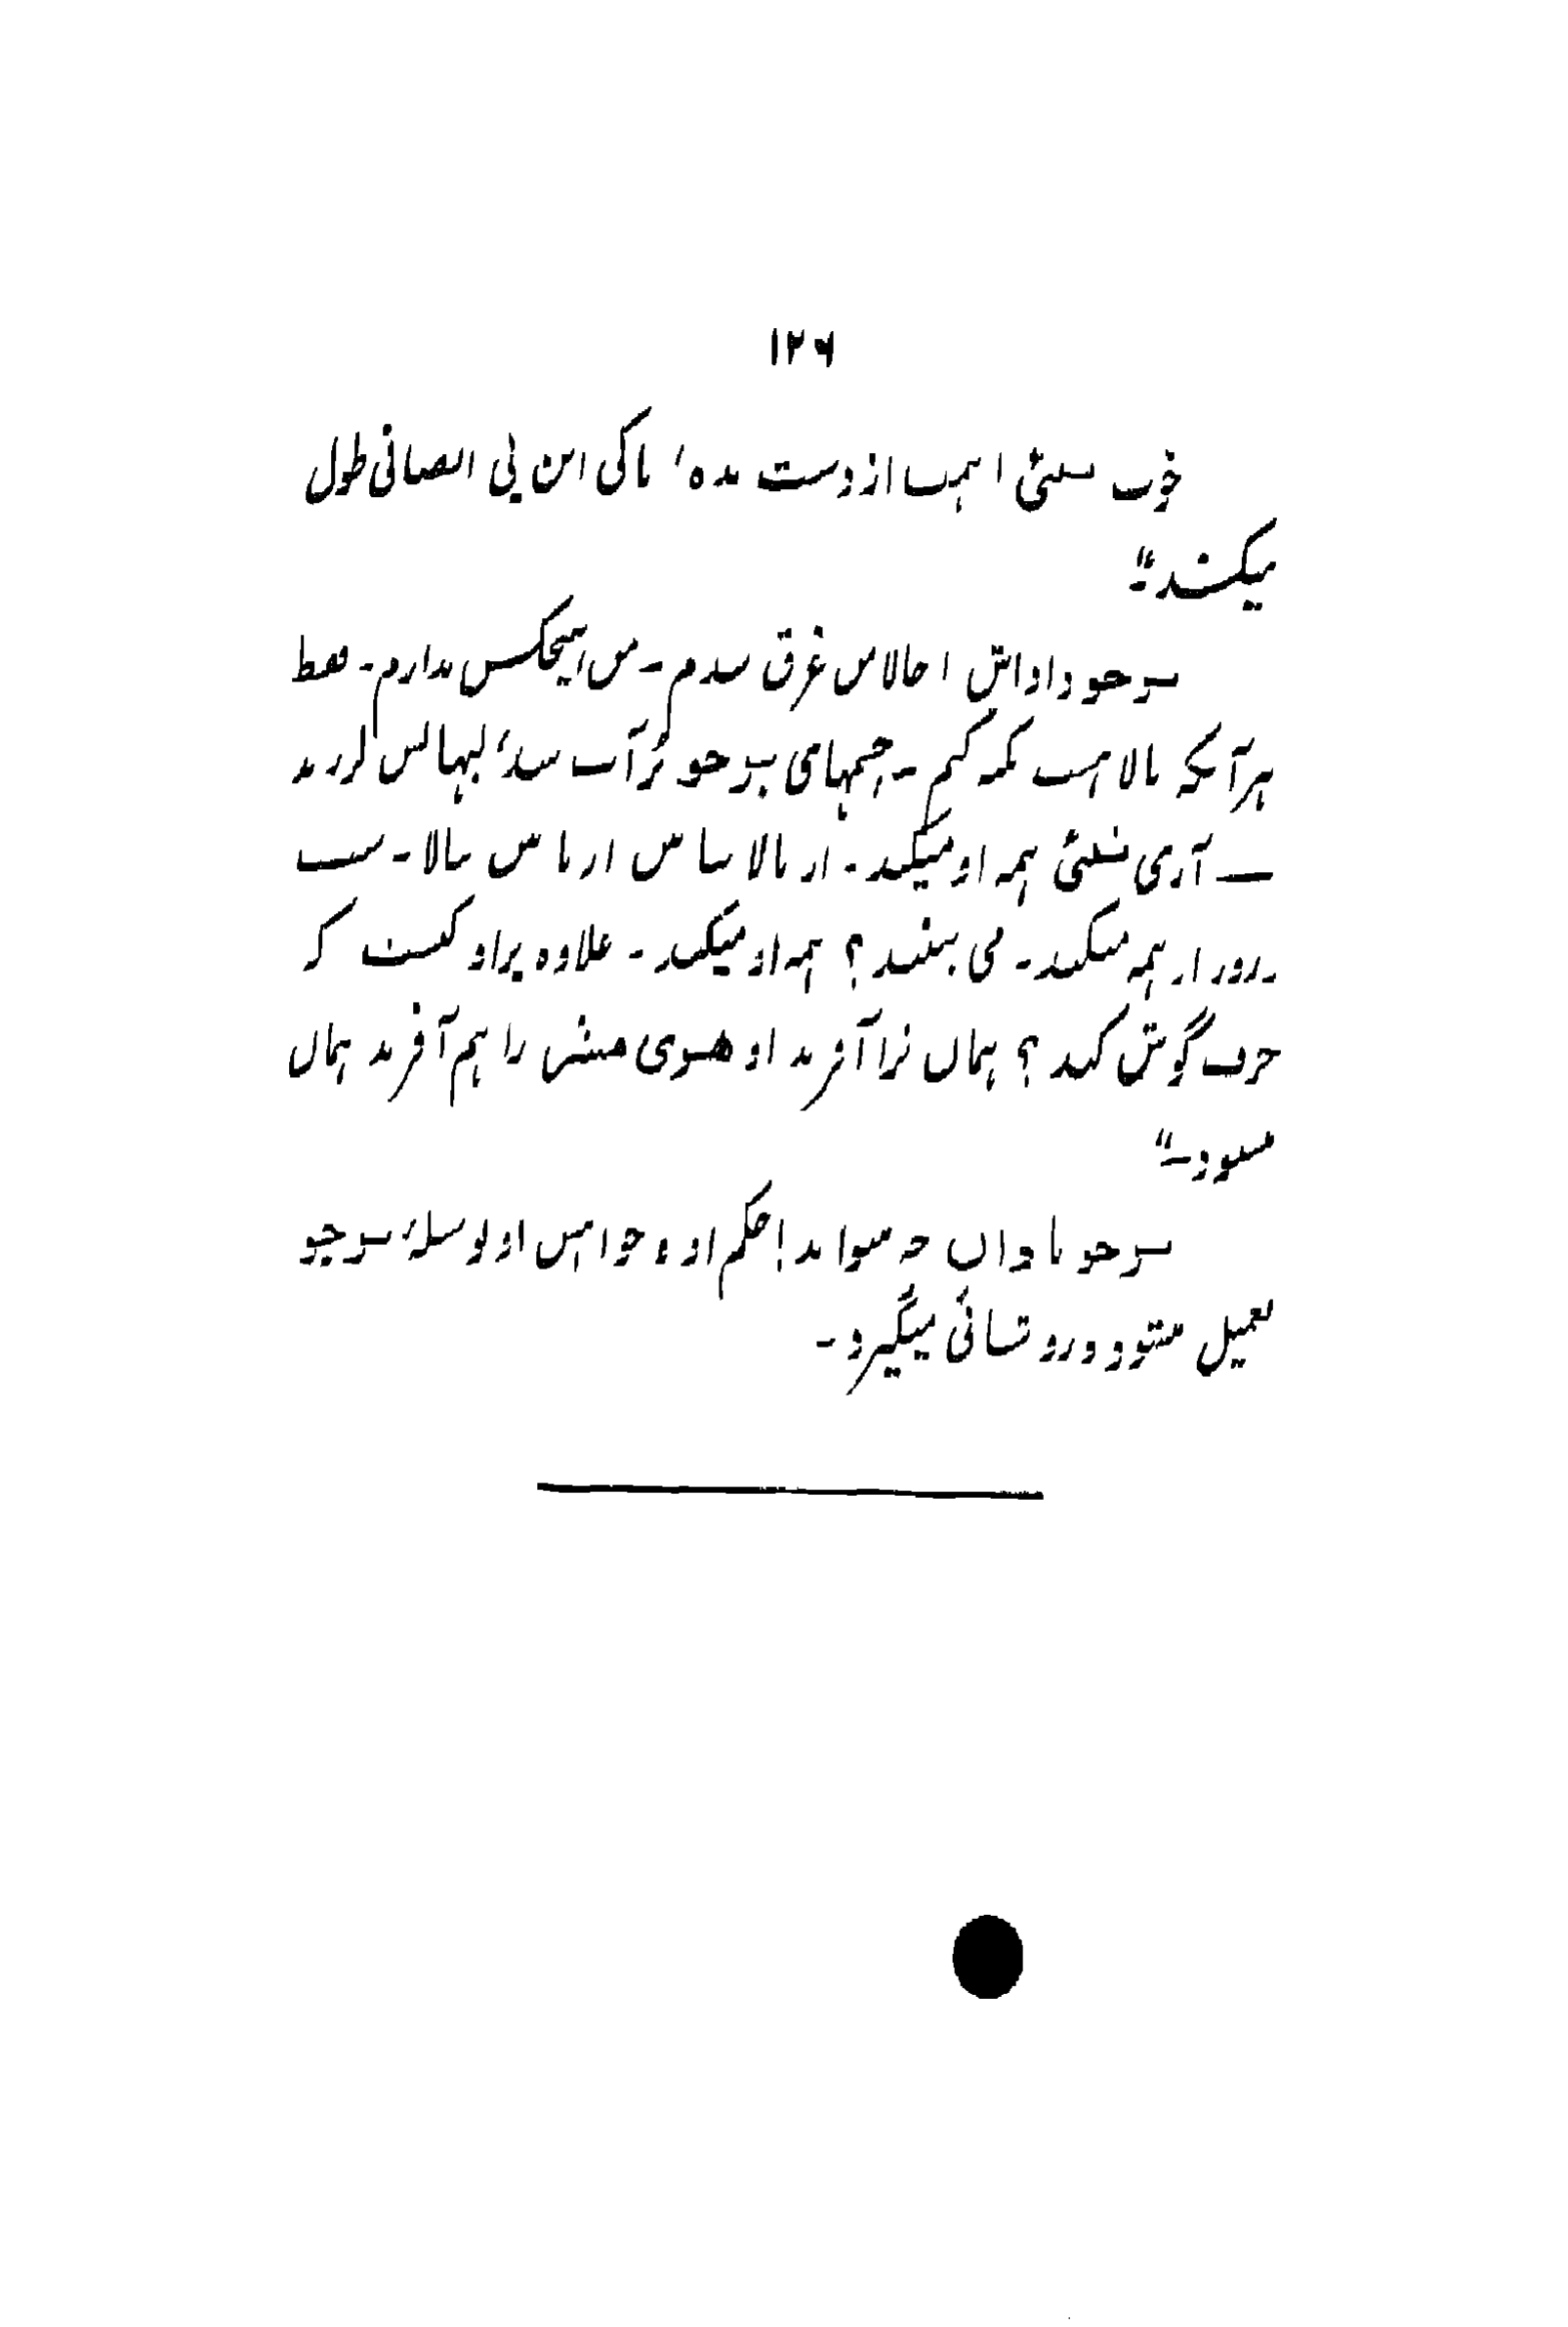 ۱۲۶
خوب سلئی اهمیت از دست مده، تا کی این بی انصافی طول
میکشد"۔
سرجو داداش احالا من غرق شدم۔ من هیچکس ندارم۔ فقط
هر آنچه بالاست تکیه کنم۔ چشمهای سرجو پر آب شد، لبهایش لرزید
— آری سلئی همه او میکند۔ از بالا بپائین از پائین ببالا۔ سبب
و زور از همه میکند۔ می بینید؟ همه او میکند۔ علاوه بر او کیست که
حرف گوش کند؟ همان ترا آفرید او را هم آفرید همان
میشود۔"
سرجو نادان چه میداند! حکم او و خواهش او بوسیلهٔ سرجو
تعمیل میشود و رو نشانی میگیرد۔